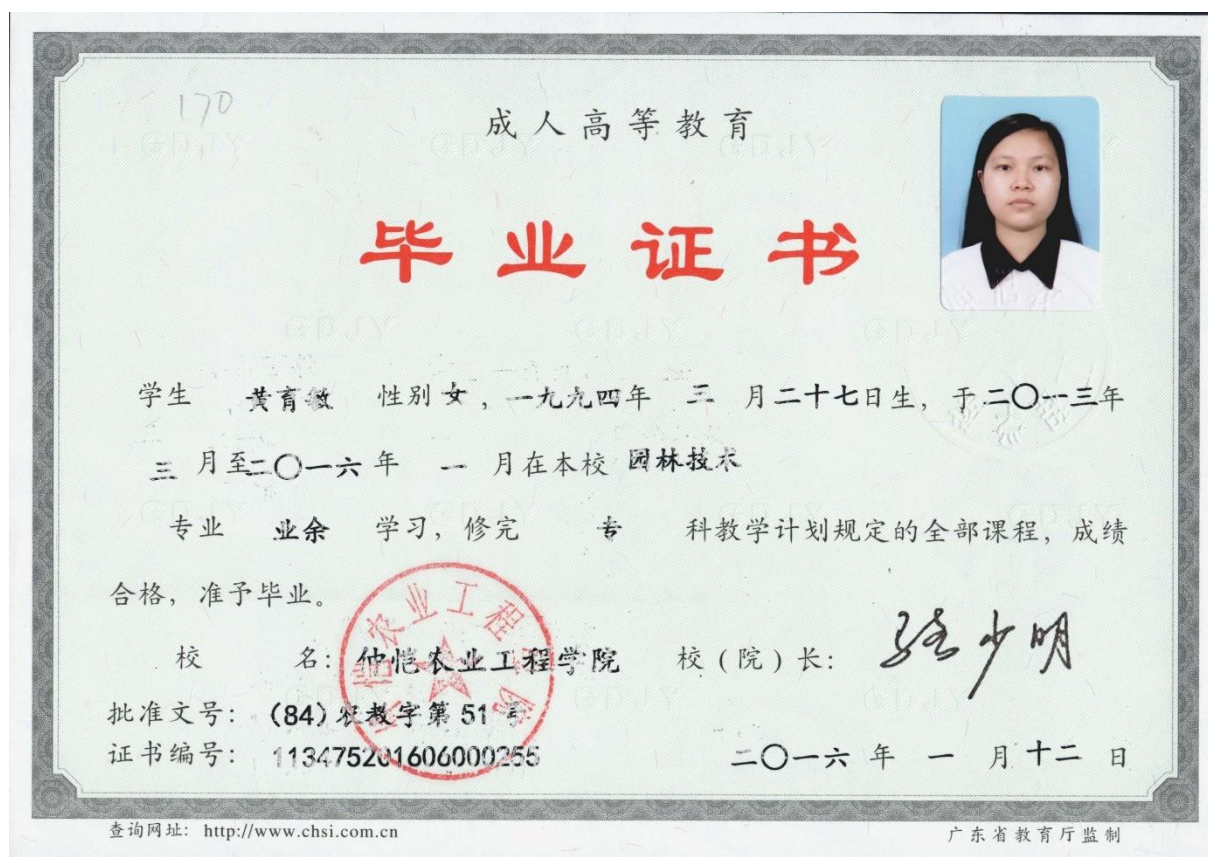 170
成人高等教育
毕业证书
学生 黄育敏 性别 女，一九九四年 三 月二十七日生，于二〇一三年
三 月至二〇一六 年 一 月在本校 园林技术
专业 业余 学习，修完 专 科教学计划规定的全部课程，成绩
合格，准予毕业。
校 名：仲恺农业工程学院 校（院）长：骆少明
批准文号：（84）农教字第 51 号
证书编号：113475201606000255 二〇一六 年 一 月 十二 日
查询网址：http://www.chsi.com.cn 广东省教育厅监制
仲恺农业工程学院